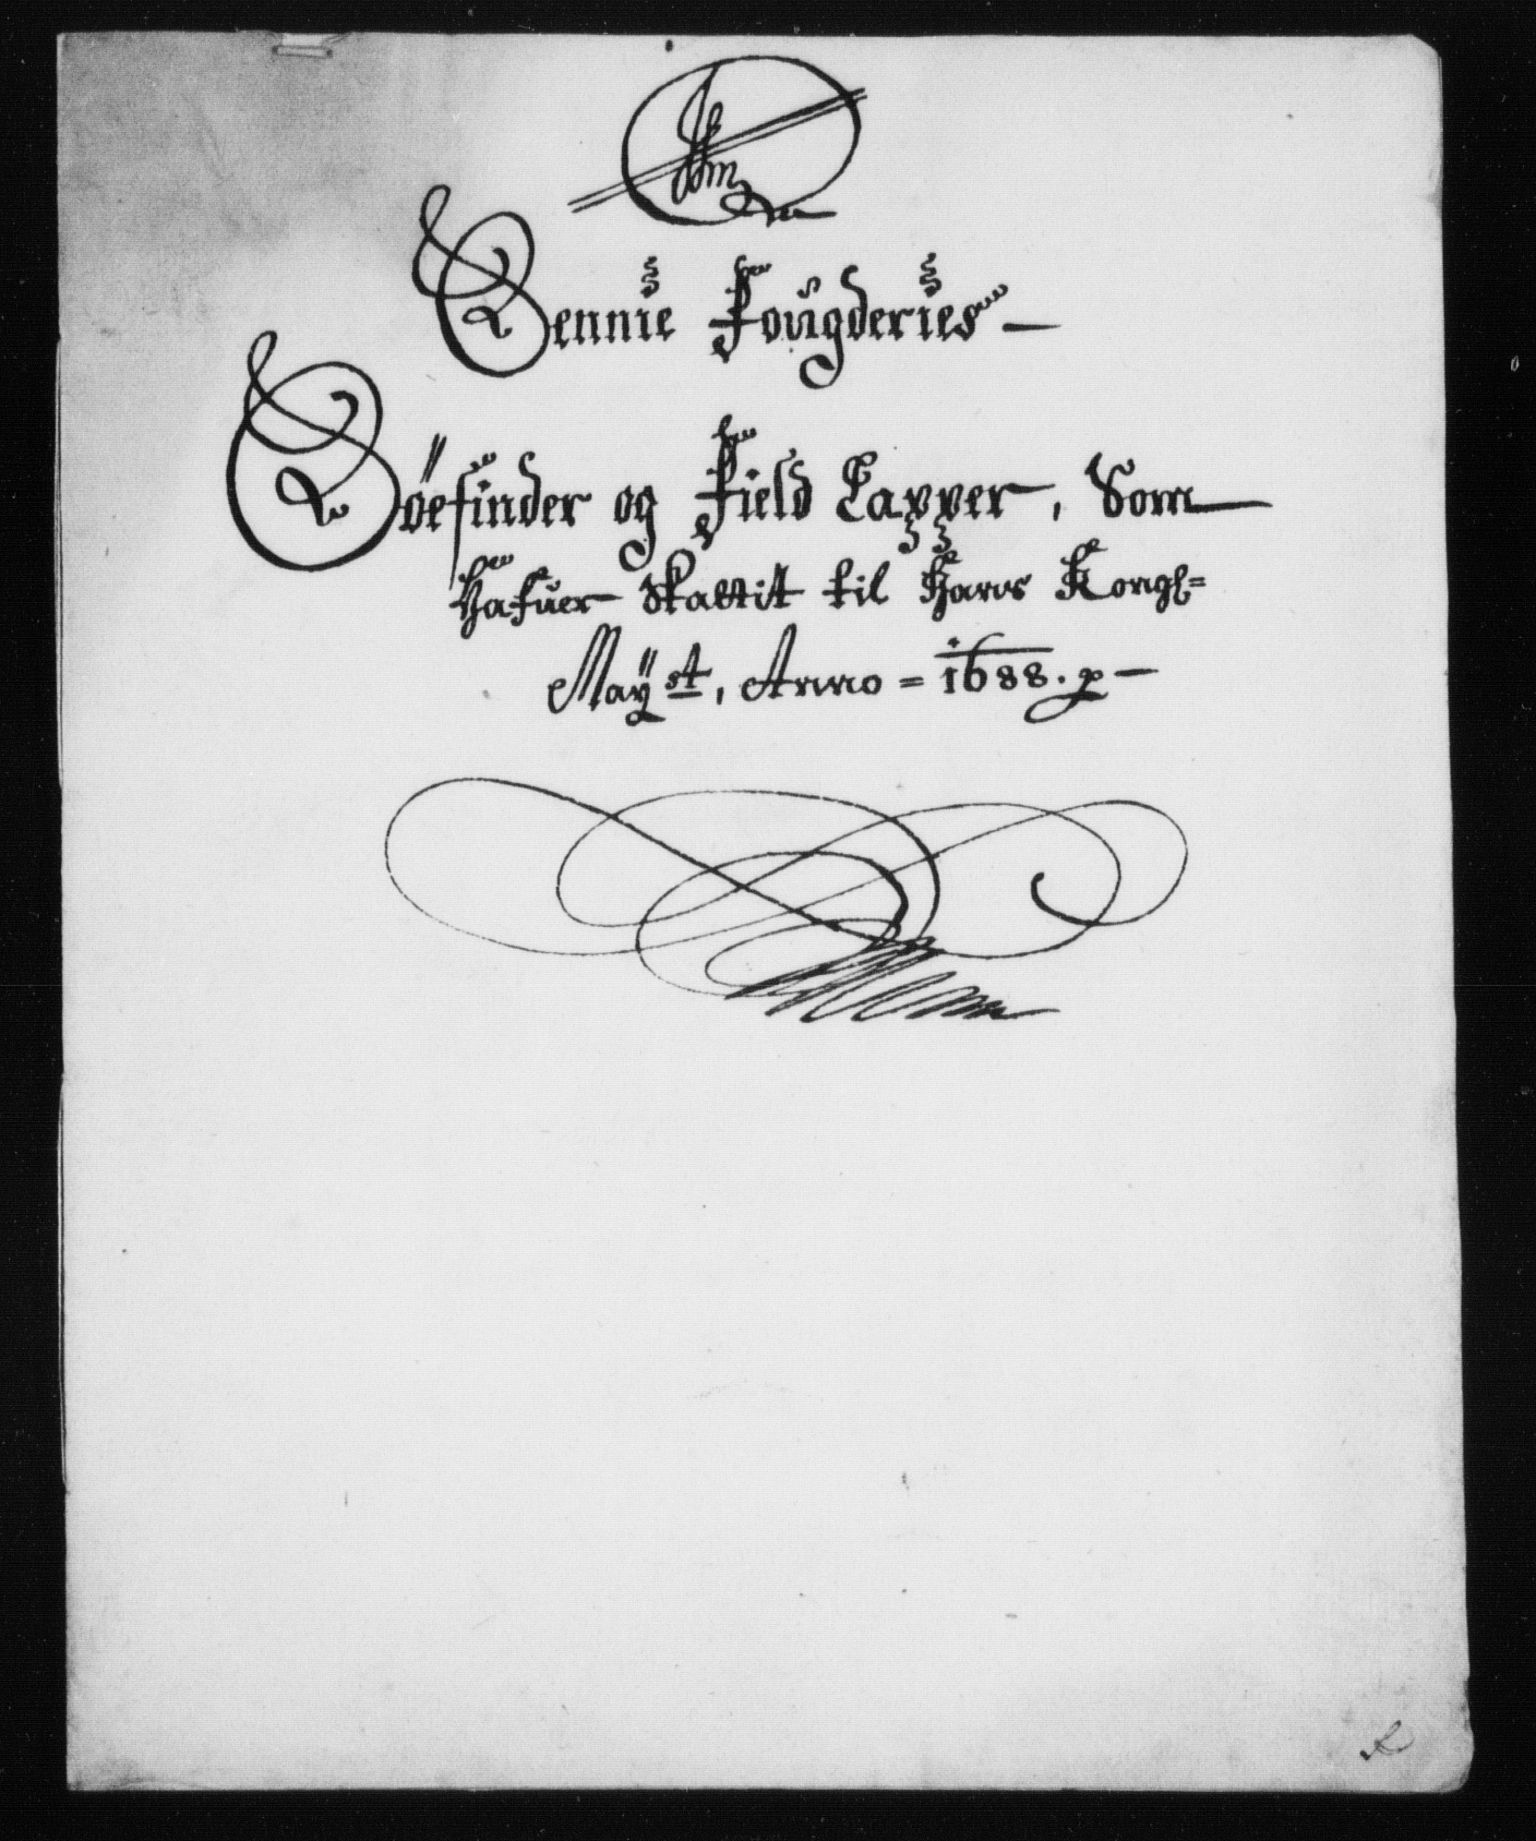 Sennie Fougderies
Söefinder og Field Lapper, Som
Hafuer Skattit til Hans Kongl=
Maÿst, Anno = 1688. p